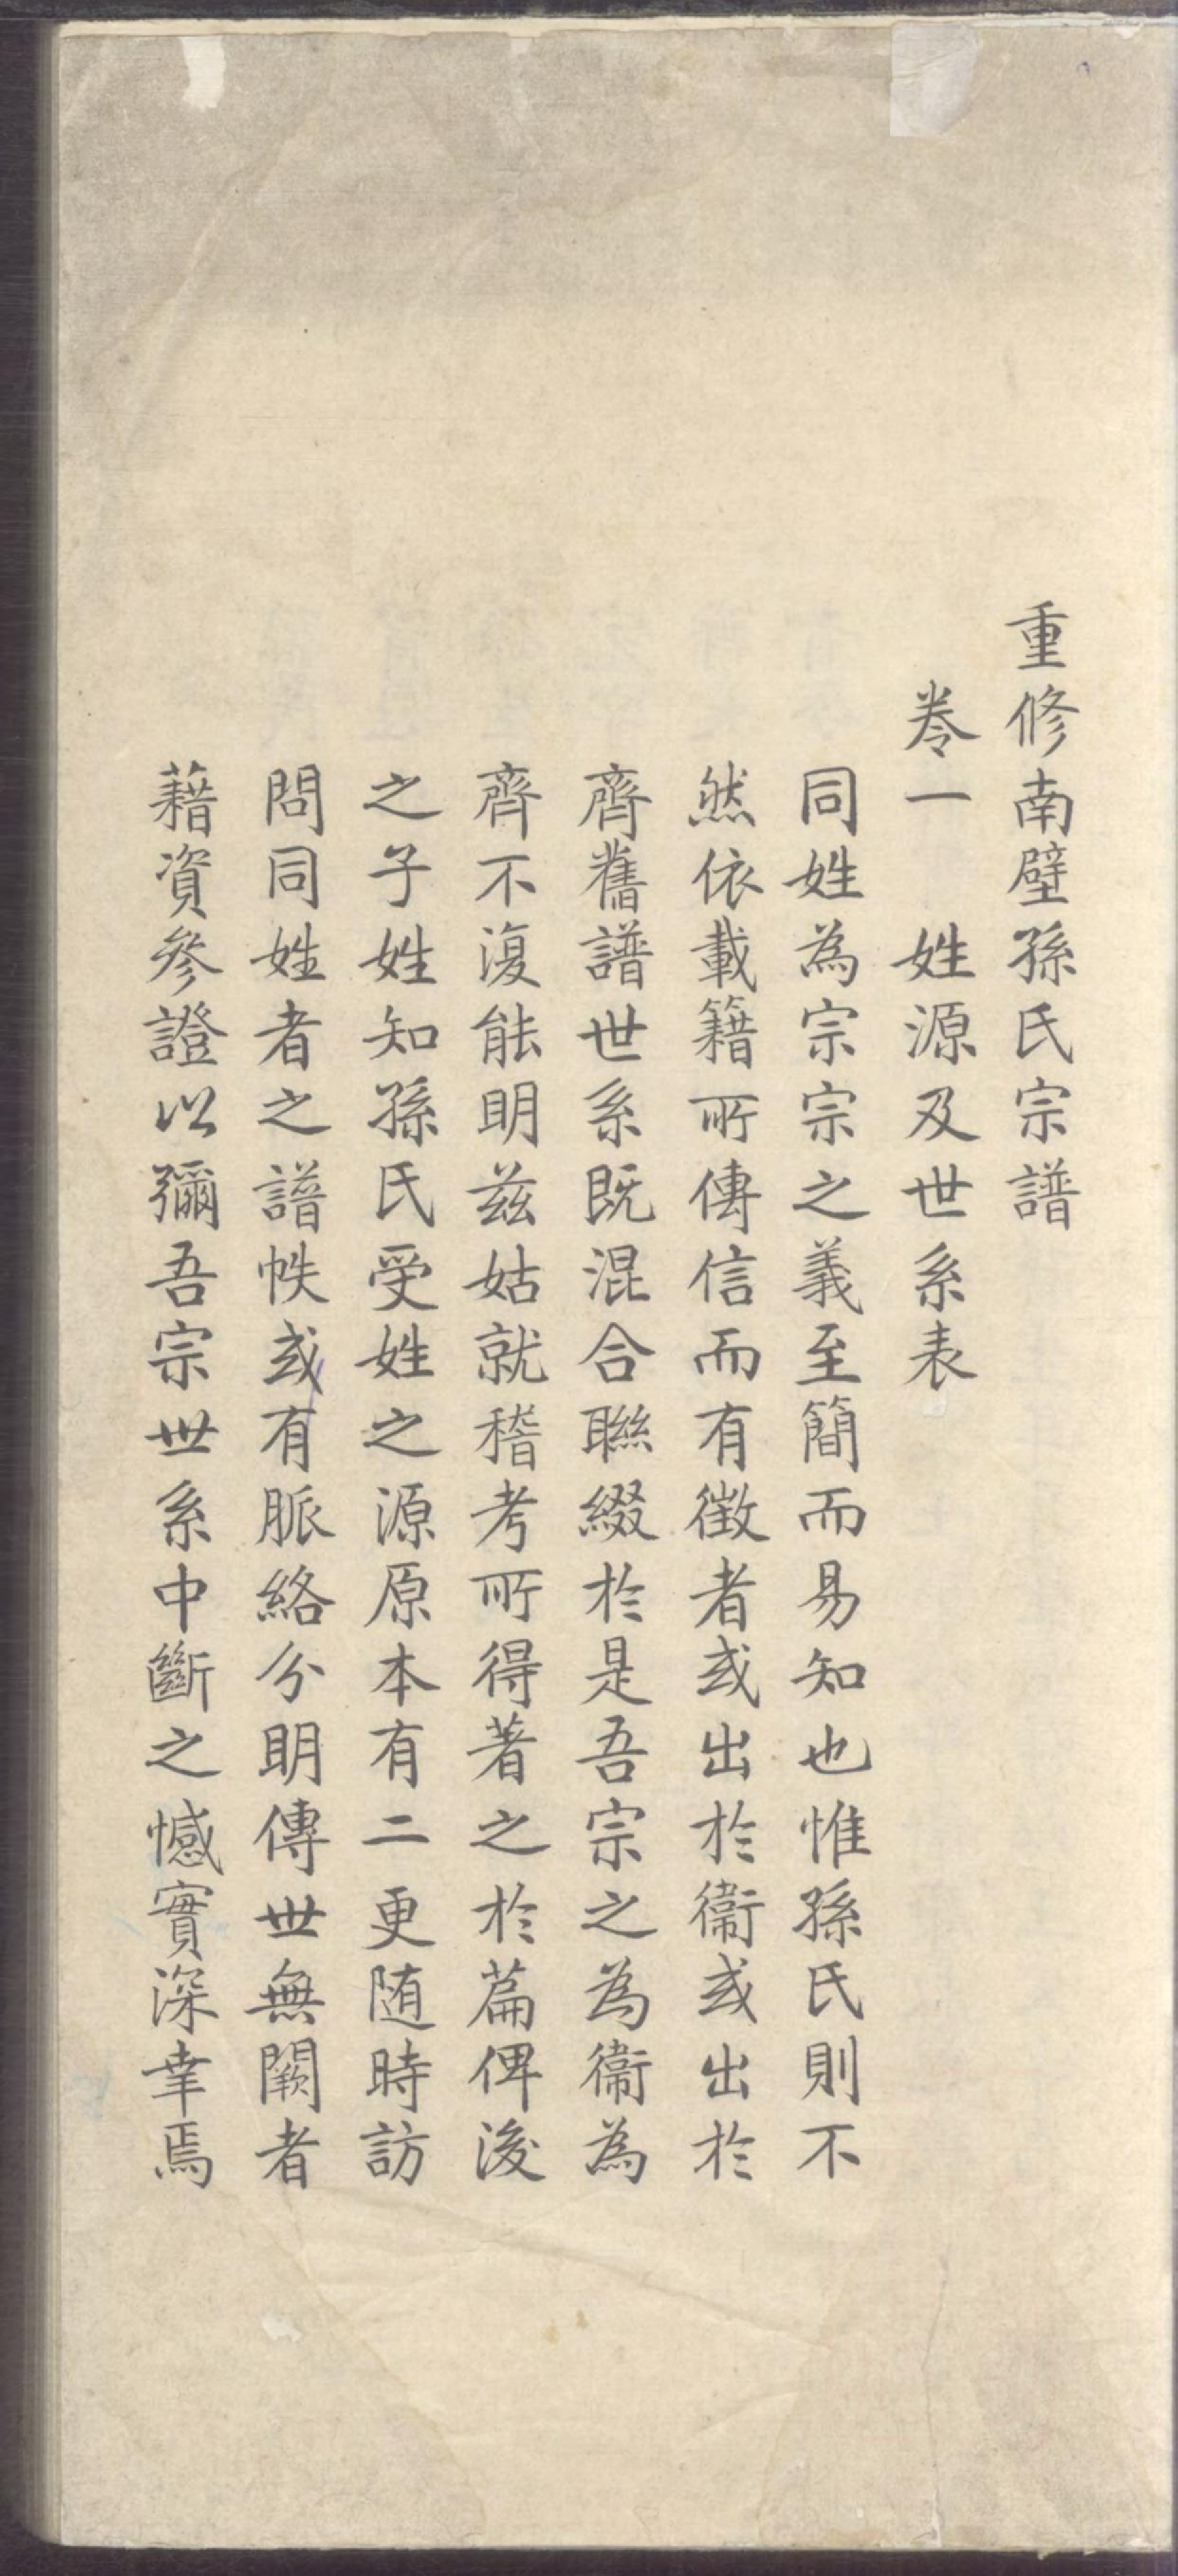 重修南壁孫氏宗譜
卷一　姓源及世系表
同姓為宗宗之義至簡而易知也惟孫氏則不
然依載籍所傳信而有徵者或出於衞或出於
齊舊譜世系既混合聯綴於是吾宗之為衞為
齊不復能明茲姑就稽考所得著之於篇俾後
之子姓知孫氏受姓之源原本有二更随時訪
問同姓者之譜帙或有脈絡分明傳世無闕者
藉資參證以彌吾宗世系中斷之憾實深幸焉